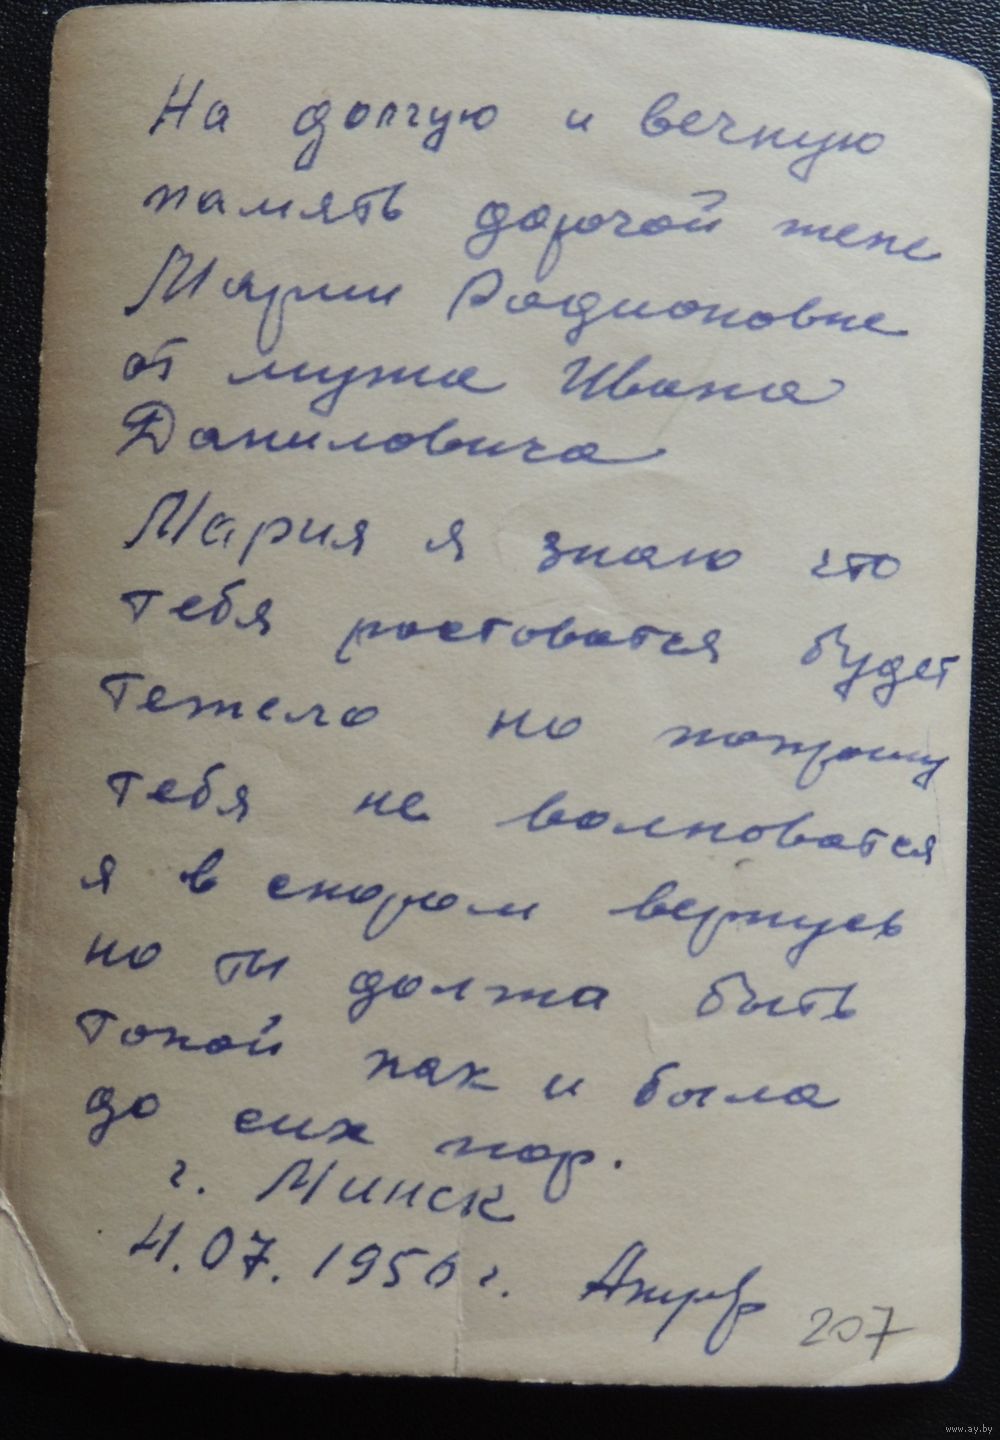 На долгую и вечную
память дорогой жене
Марии Родионовне
от мужа Ивана
Даниловича
Мария я знаю что
тебя ростоватся будет
тежело но попрошу
тебя не волноватся
я в скором вернусь
но ты должна быть
такой как и была
до сих пор.
г. Минск
4.07.1956 г.
207
www.ay.by